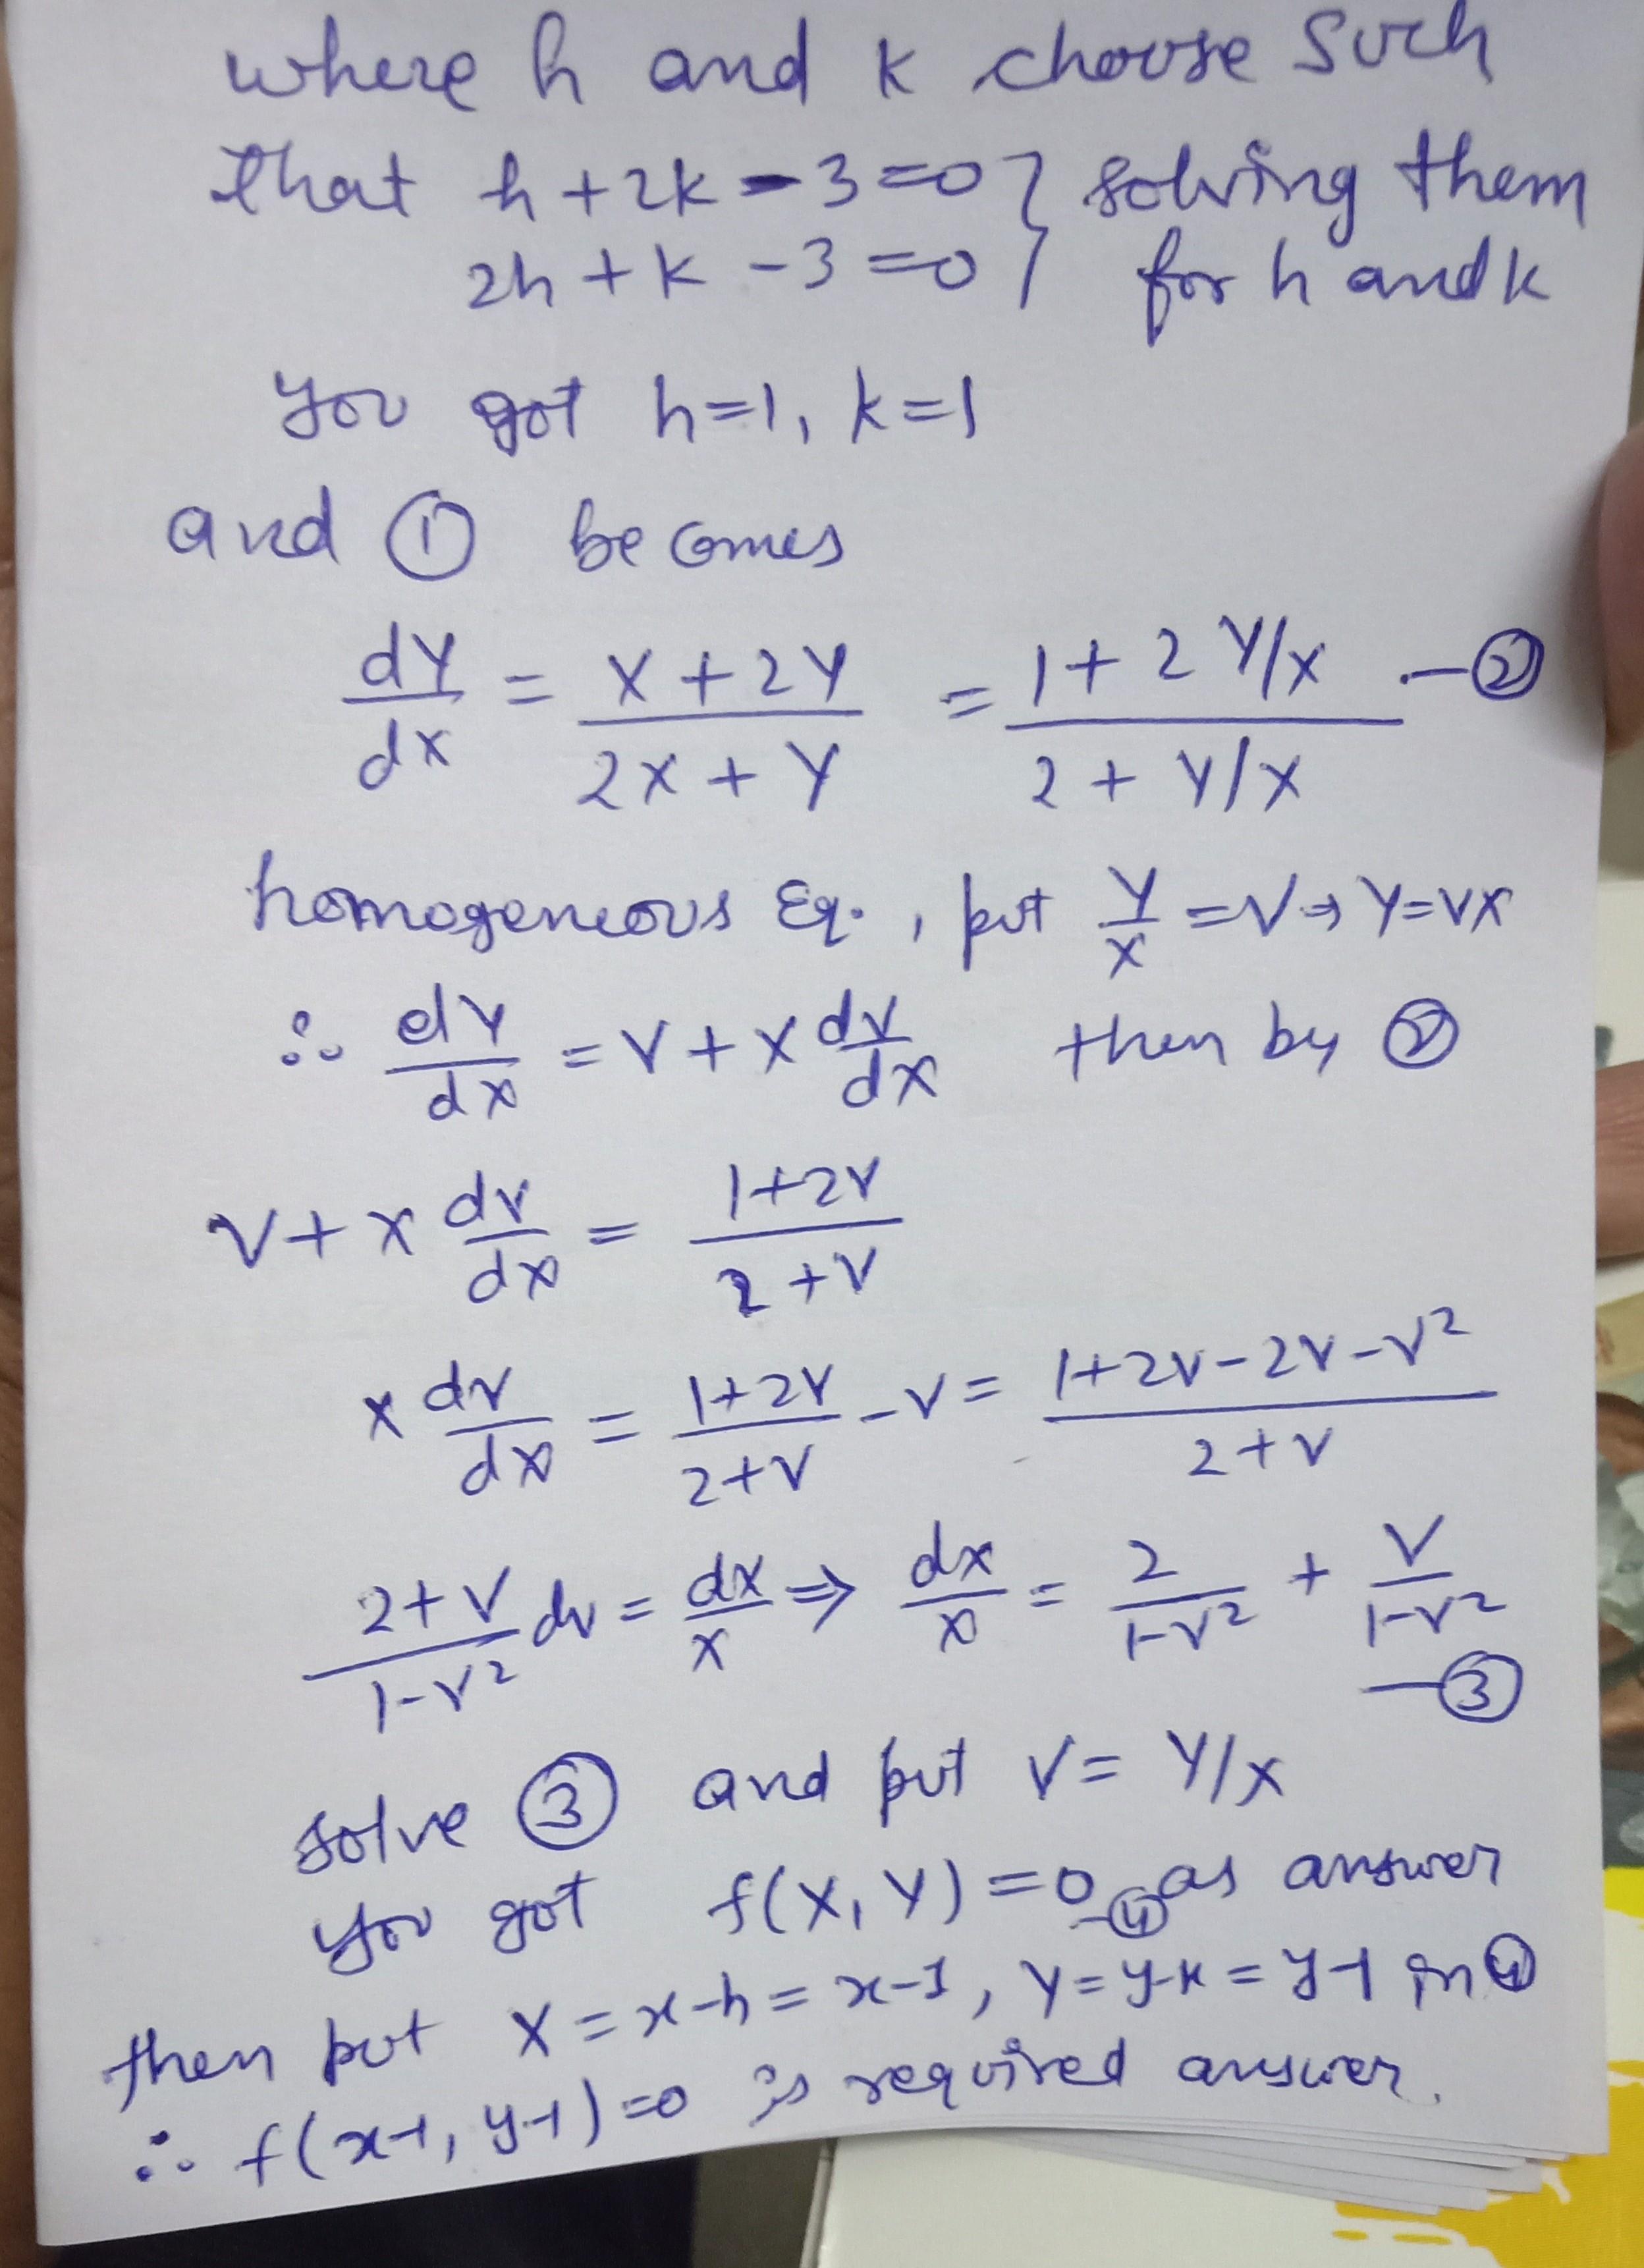 where h and k choose such
that h + 2k - 3 = 0 } solving them
2h + k - 3 = 0 } for h and k
you got h=1, k=1
and ① becomes
dY/dX = (X + 2Y)/(2X + Y) = (1 + 2 Y/X)/(2 + Y/X) —②
homogeneous Eq. , put Y/X = V ⇒ Y = VX
∴ dY/dX = V + X dV/dX then by ②
V + X dV/dX = (1+2V)/(2+V)
X dV/dX = (1+2V)/(2+V) - V = (1+2V-2V-V²)/(2+V)
(2+V)/(1-V²) dV = dX/X ⇒ dX/X = 2/(1-V²) + V/(1-V²)
—③
solve ③ and put V = Y/X
you got f(X, Y) = 0 —④ as answer
then put X = x-h = x-1, Y = y-k = y-1 in ④
∴ f(x-1, y-1) = 0 is required answer.